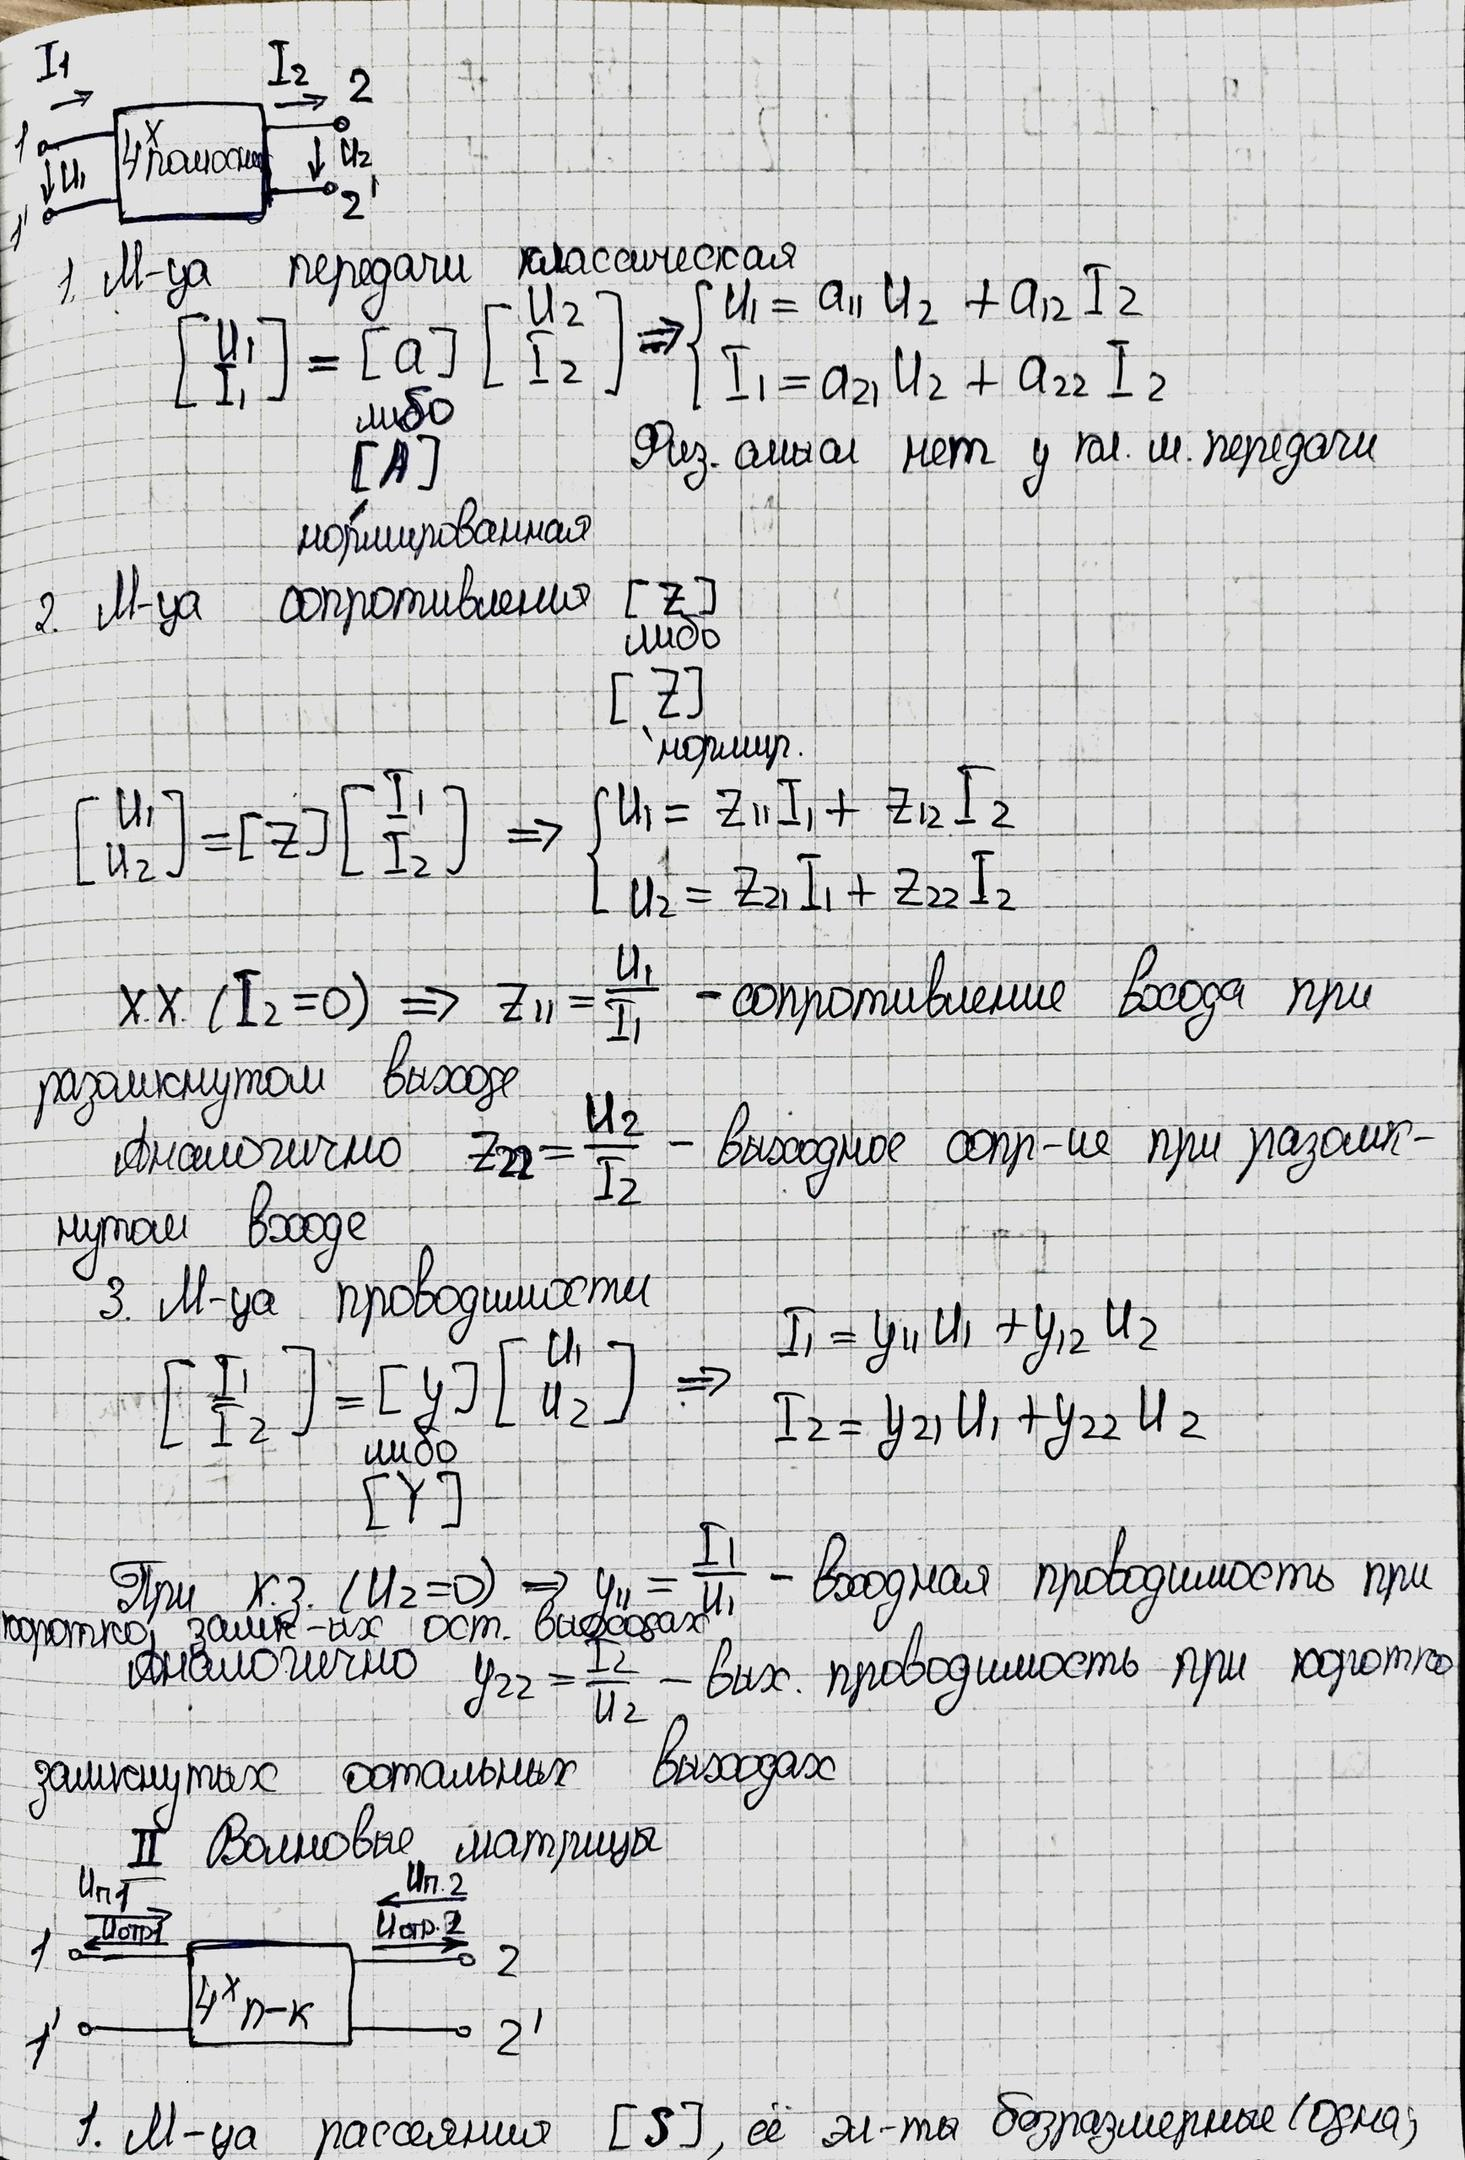 I₁ I₂ 2
1 4ˣполюсник U₂
U₁
1' 2'
1. М-ца передачи классическая
[U₁ I₁] = [a] [U₂ I₂] ⇒ { U₁ = a₁₁ U₂ + a₁₂ I₂
I₁ = a₂₁ U₂ + a₂₂ I₂
либо
[A] Физ. смысл нет у кл. м. передачи
нормированная
2. М-ца сопротивления [z]
либо
[Z]
нормир.
[U₁ U₂] = [z] [I₁ I₂] ⇒ { U₁ = z₁₁ I₁ + z₁₂ I₂
U₂ = z₂₁ I₁ + z₂₂ I₂
Х.Х. (I₂ = 0) ⇒ z₁₁ = U₁/I₁ - сопротивление входа при
разомкнутом выходе
Аналогично z₂₂ = U₂/I₂ - выходное сопр-ие при разомк-
нутом входе
3. М-ца проводимости
[I₁ I₂] = [y] [U₁ U₂] ⇒ I₁ = y₁₁ U₁ + y₁₂ U₂
I₂ = y₂₁ U₁ + y₂₂ U₂
либо
[Y]
При к.з. (U₂ = 0) ⇒ y₁₁ = I₁/U₁ - входная проводимость при
коротко замк-ых ост. выходах
Аналогично y₂₂ = I₂/U₂ - вых. проводимость при коротко
замкнутых остальных выходах
II Волновые матрицы
Uп1 Uп.2
Uотр1 Uотр.2
1 2
4ˣ п-к
1' 2'
1. М-ца рассеяния [S], её эл-ты безразмерные (одна;